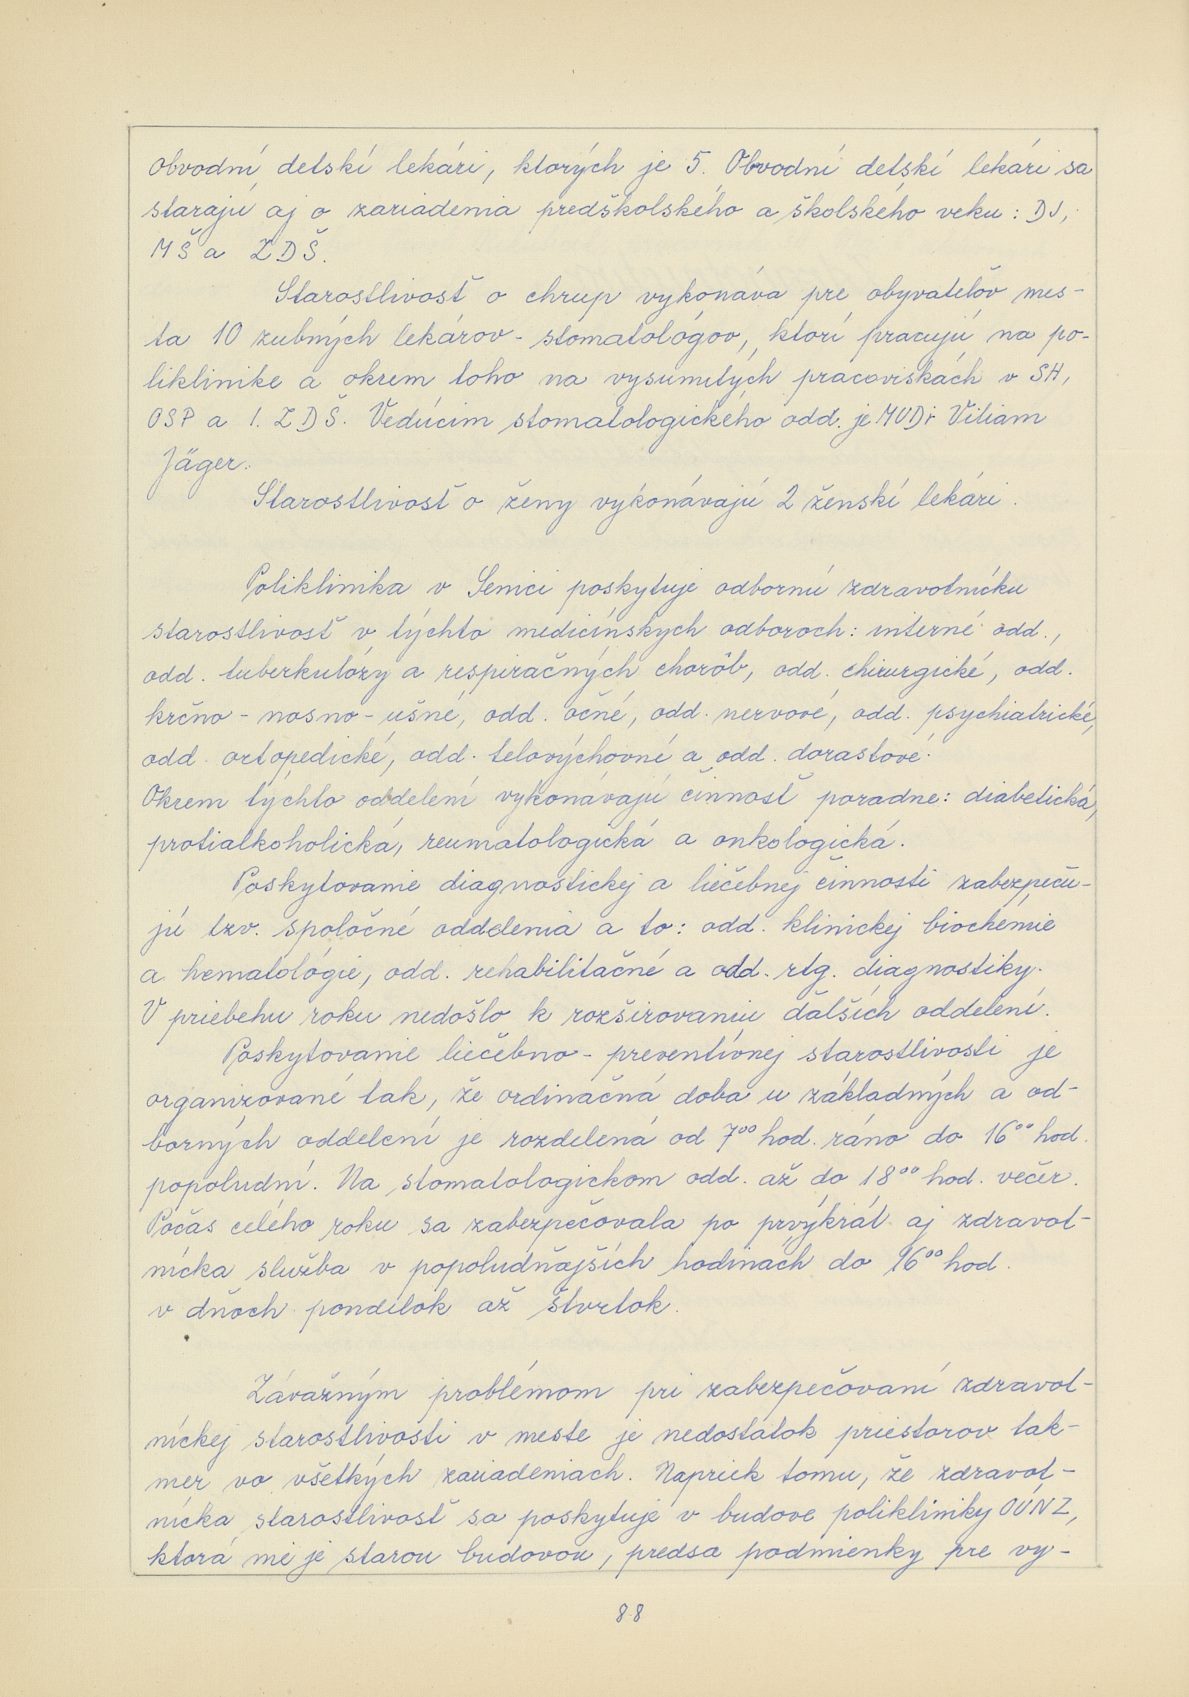 obvodní detskí lekári, ktorých je 5. Obvodní detskí lekári sa
starajú aj o zariadenia predškolského a školského veku: DJ,
MŠ a ZDŠ.
Starostlivosť o chrup vykonáva pre obyvateľov mes-
ta 10 zubných lekárov - stomatológov, ktorí pracujú na po-
liklinike a okrem toho na vysunutých pracoviskách v SH,
OSP a 1. ZDŠ. Vedúcim stomatologického odd. je MUDr Viliam
Jäger.
Starostlivosť o ženy vykonávajú 2 ženskí lekári.
Poliklinika v Senici poskytuje odbornú zdravotnícku
starostlivosť v týchto medicínskych odboroch: interné odd.,
odd. tuberkulózy a respiračných chorôb, odd. chirurgické, odd.
krčno - nosno - ušné, odd. očné, odd. nervové, odd. psychiatrické,
odd. ortopedické, odd. telovýchovné a odd. dorastové.
Okrem týchto oddelení vykonávajú činnosť poradne: diabetická,
protialkoholická, reumatologická a onkologická.
Poskytovanie diagnostickej a liečebnej činnosti zabezpeču-
jú tzv. spoločné oddelenia a to: odd. klinickej biochémie
a hematológie, odd. rehabilitačné a odd. rtg. diagnostiky.
V priebehu roku nedošlo k rozširovaniu ďalších oddelení.
Poskytovanie liečebno - preventívnej starostlivosti je
organizované tak, že ordinačná doba u základných a od-
borných oddelení je rozdelená od 7⁰⁰ hod. ráno do 16⁰⁰ hod.
popoludní. Na stomatologickom odd. až do 18⁰⁰ hod. večer.
Počas celého roku sa zabezpečovala po prvýkrát aj zdravot-
nícka služba v popoludňajších hodinách do 16⁰⁰ hod.
v dňoch pondelok až štvrtok.
Závažným problémom pri zabezpečovaní zdravot-
níckej starostlivosti v meste je nedostatok priestorov tak-
mer vo všetkých zariadeniach. Napriek tomu, že zdravot-
nícka starostlivosť sa poskytuje v budove polikliniky OÚNZ,
ktorá nie je starou budovou, predsa podmienky pre vy-
88